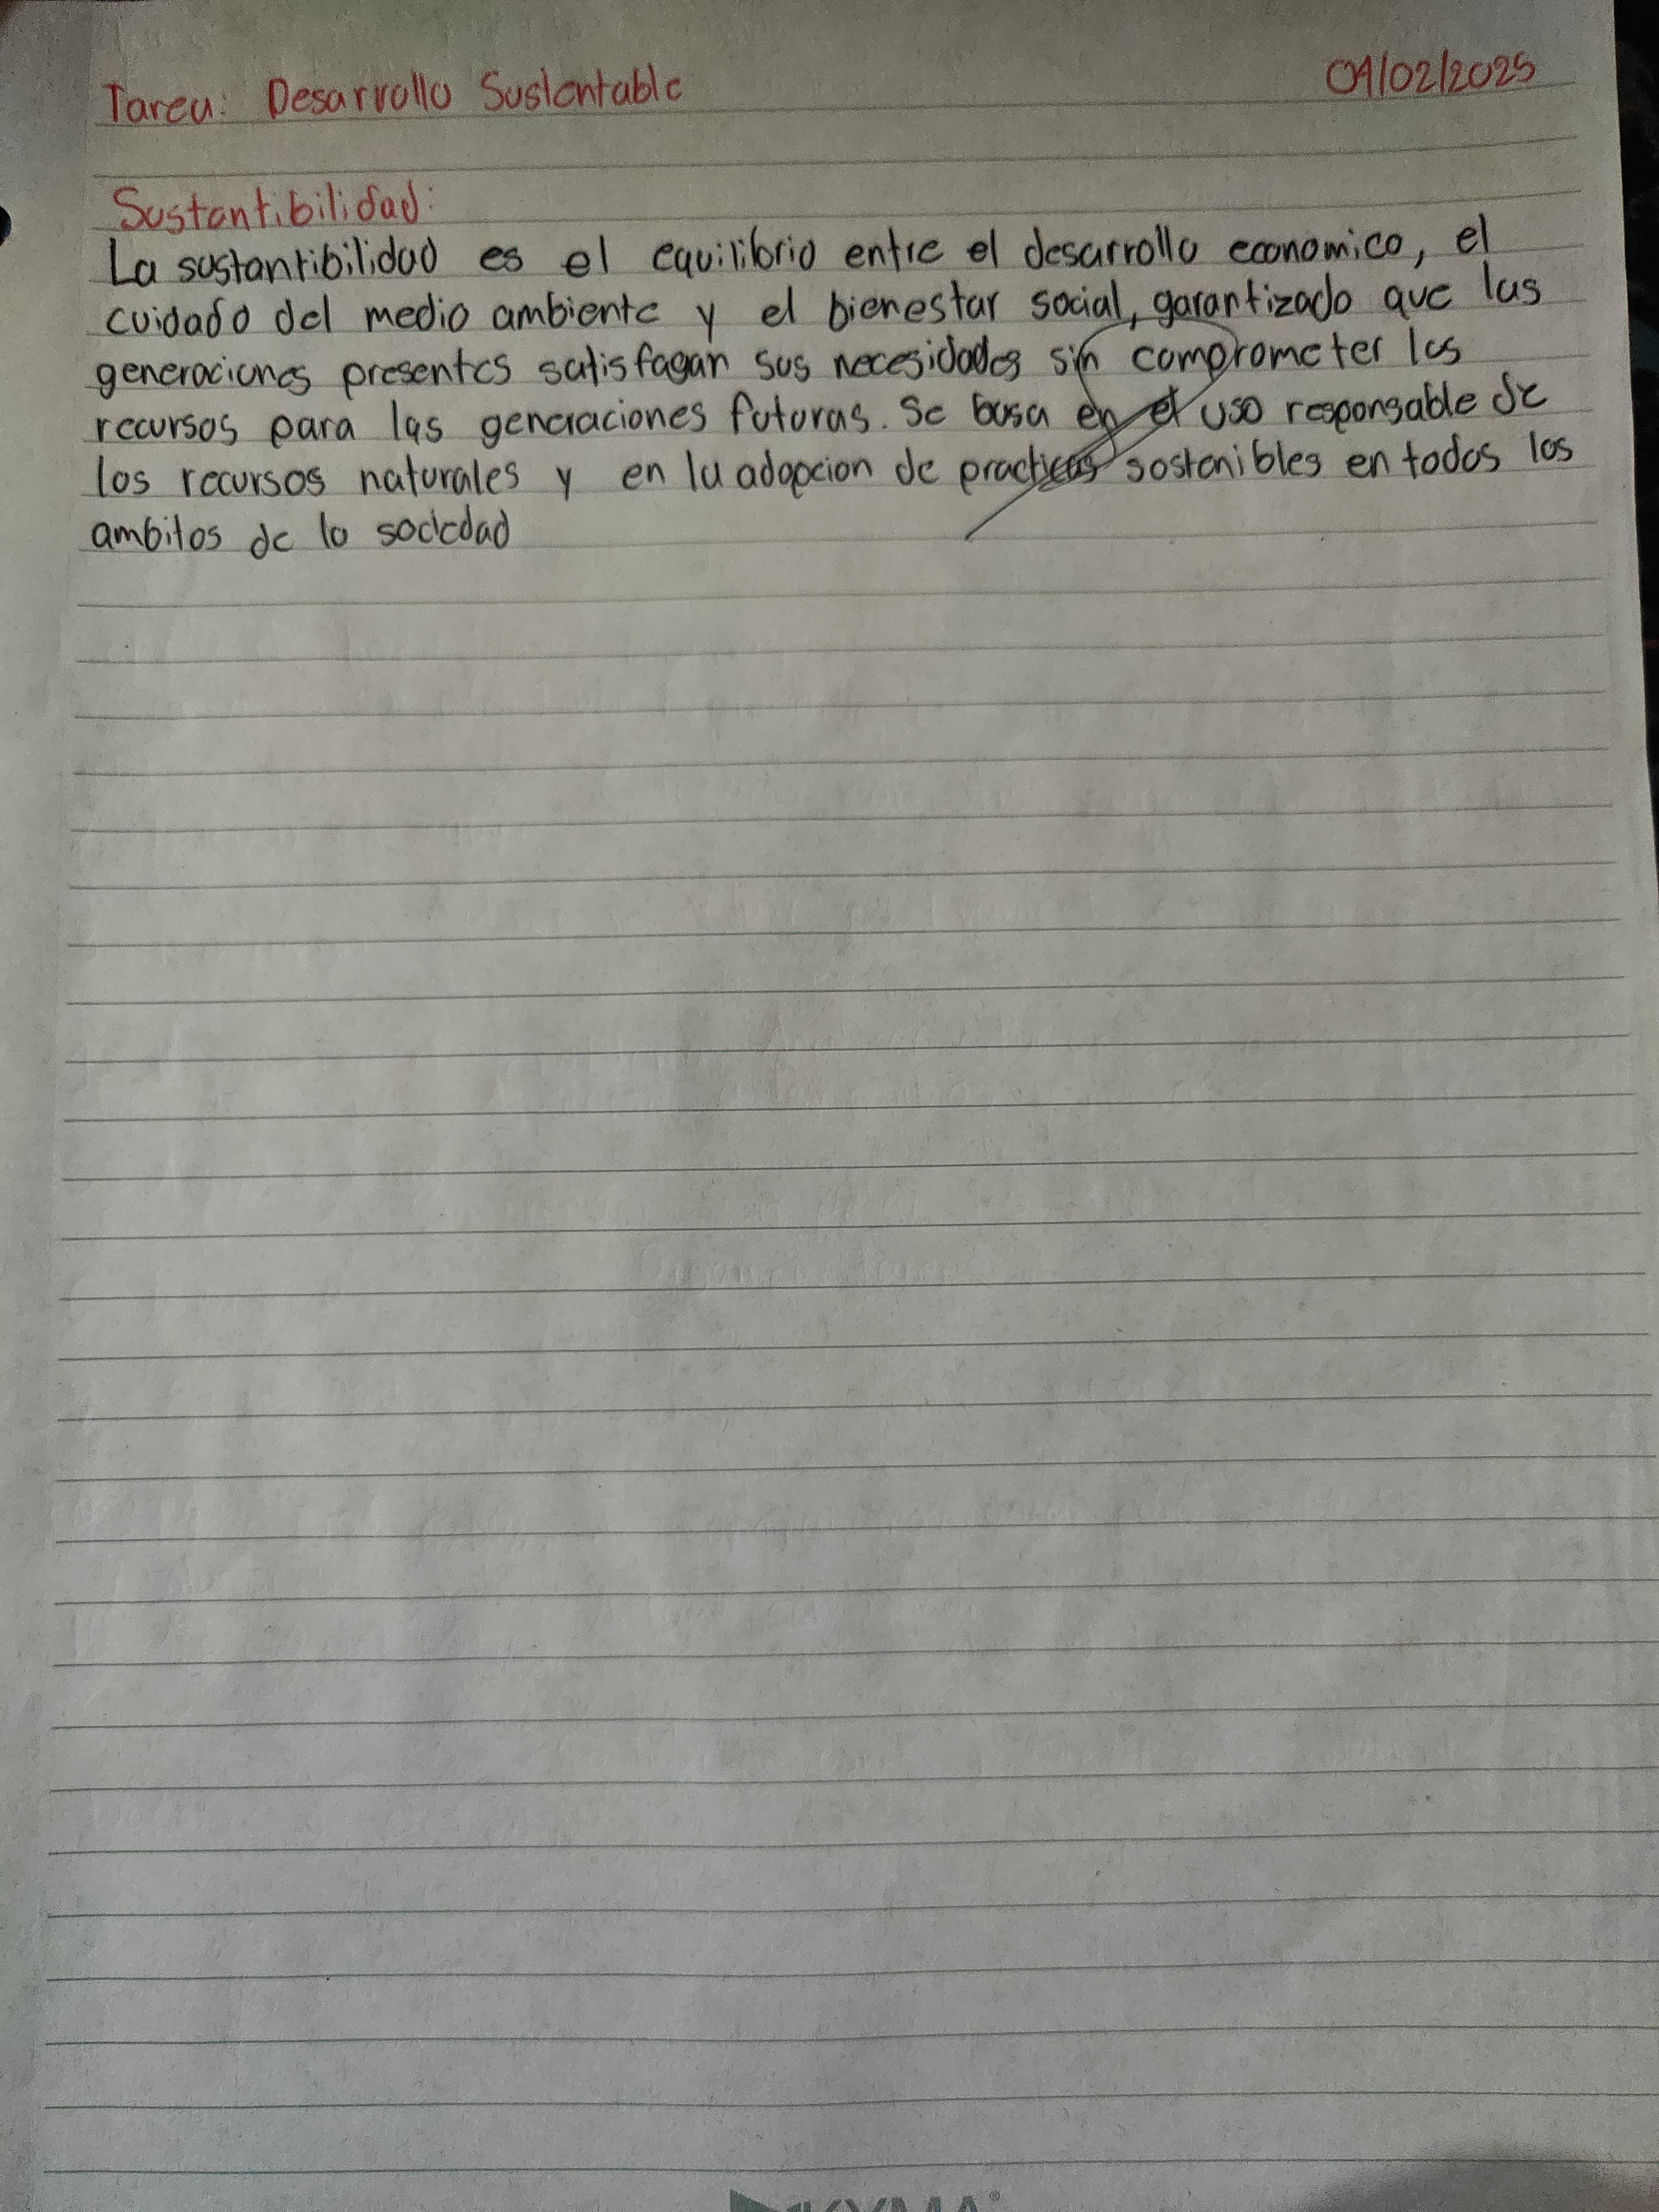 Tarea: Desarrollo Sustentable 04/02/2025
Sustantibilidad:
La sustantibilidad es el equilibrio entre el desarrollo economico, el
cuidado del medio ambiente y el bienestar social, garantizado que las
generaciones presentes satisfagan sus necesidades sin comprometer los
recursos para las generaciones futuras. Se basa en el uso responsable de
los recursos naturales y en la adopcion de practicas sostenibles en todos los
ambitos de la sociedad